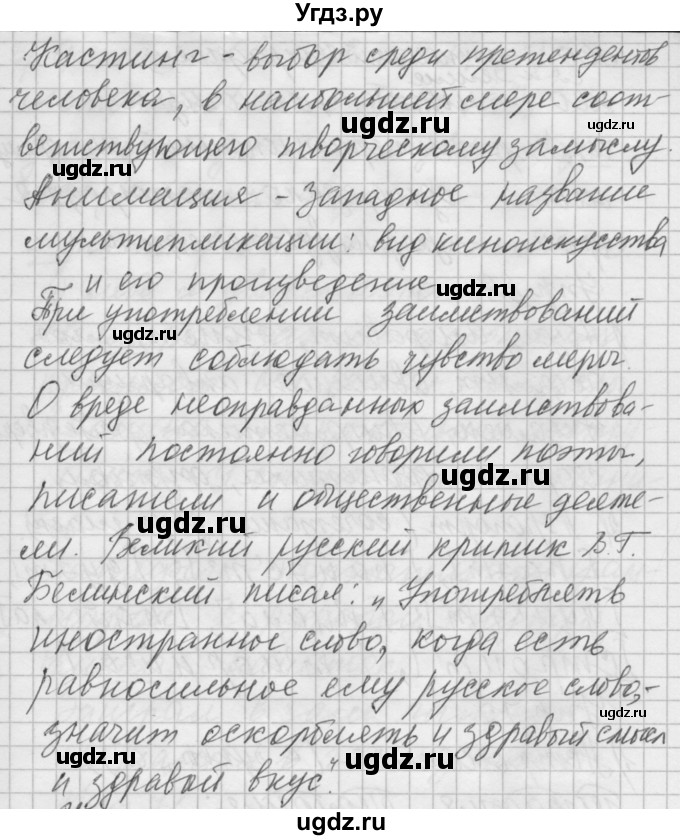 Угдз.ру
Кастинг - выбор среди претендентов
человека, в наибольшей мере соот-
ветствующего творческому замыслу.
Анимация - западное название
мультипликации: вид киноискусства
и его произведение
При употреблении заимствований
следует соблюдать чувство меры.
О вреде неоправданных заимствова-
ний постоянно говорили поэты,
писатели и общественные деяте-
ли. Великий русский критик В.Г.
Белинский писал: „Употреблять
иностранное слово, когда есть
равносильное ему русское слово,-
значит оскорблять и здравый смысл
и здравый вкус".
ugdz.ru
ugdz.ru
ugdz.ru
ugdz.ru
ugdz.ru
ugdz.ru
ugdz.ru
ugdz.ru
ugdz.ru
ugdz.ru
ugdz.ru
ugdz.ru
ugdz.ru